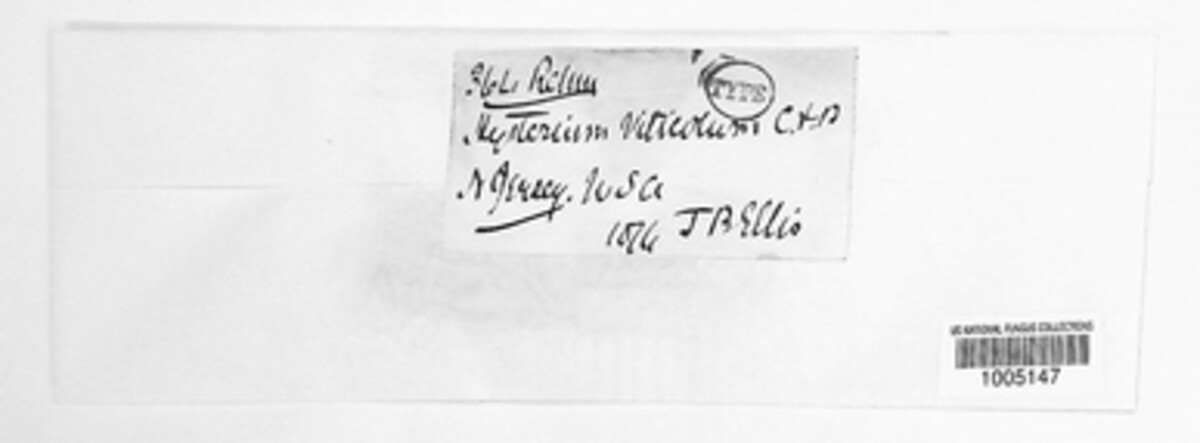 Rehm
TYPE
Hysterium Viticolum C & P
N Jersey. USA
J B Ellis
US NATIONAL FUNGUS COLLECTIONS
1005147